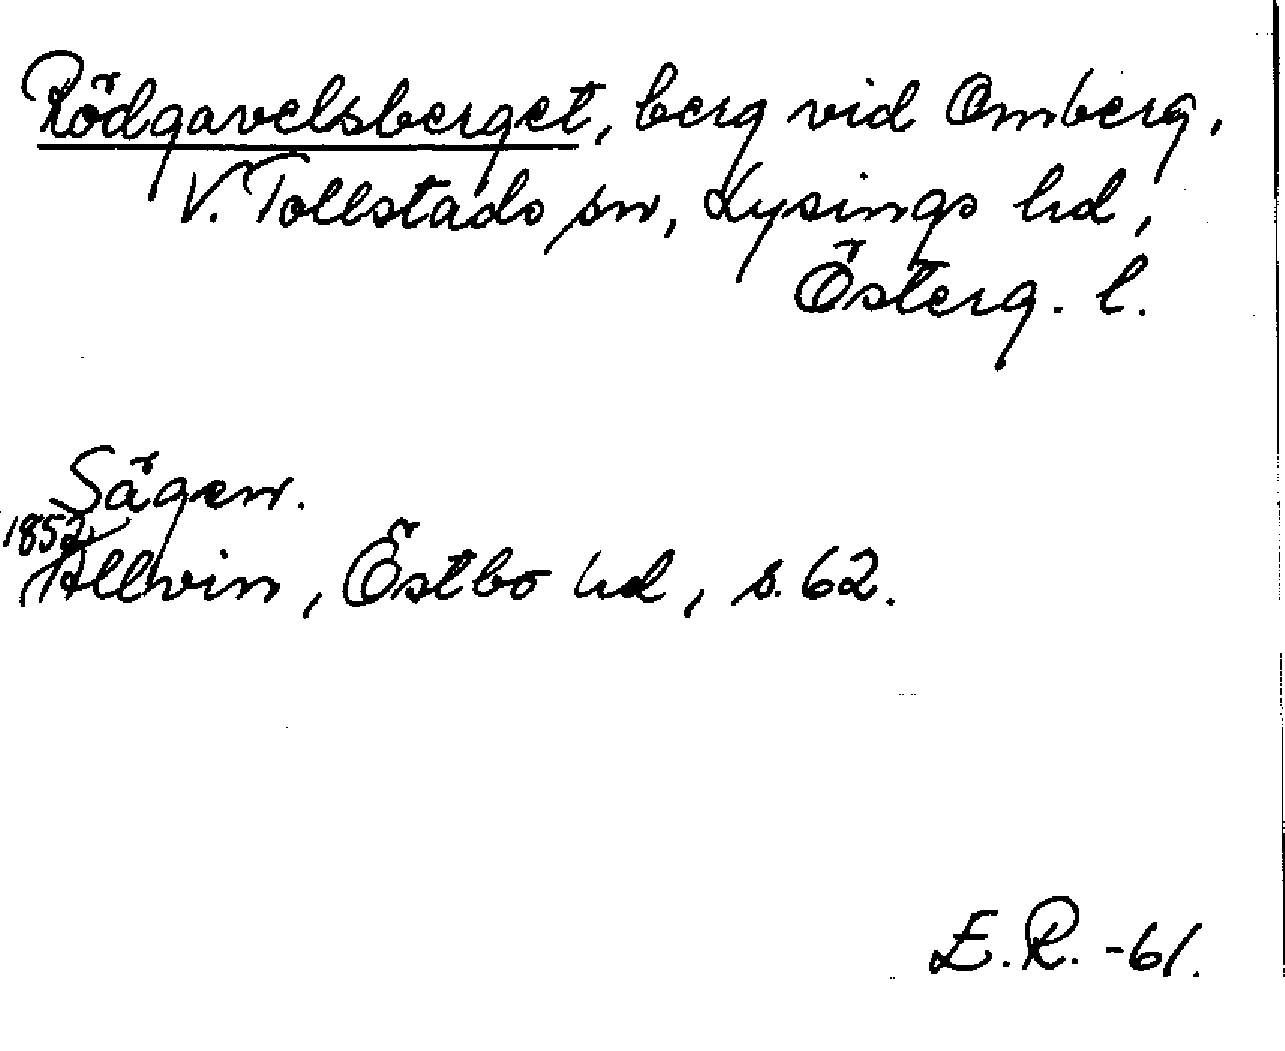 Rödgavelsberget, berg vid Omberg,
V. Tollstads sn, Lysings hd,
Österg. l.
Sägen.
1852
Allvin, Östbo hd, s. 62.
E.R. -61.